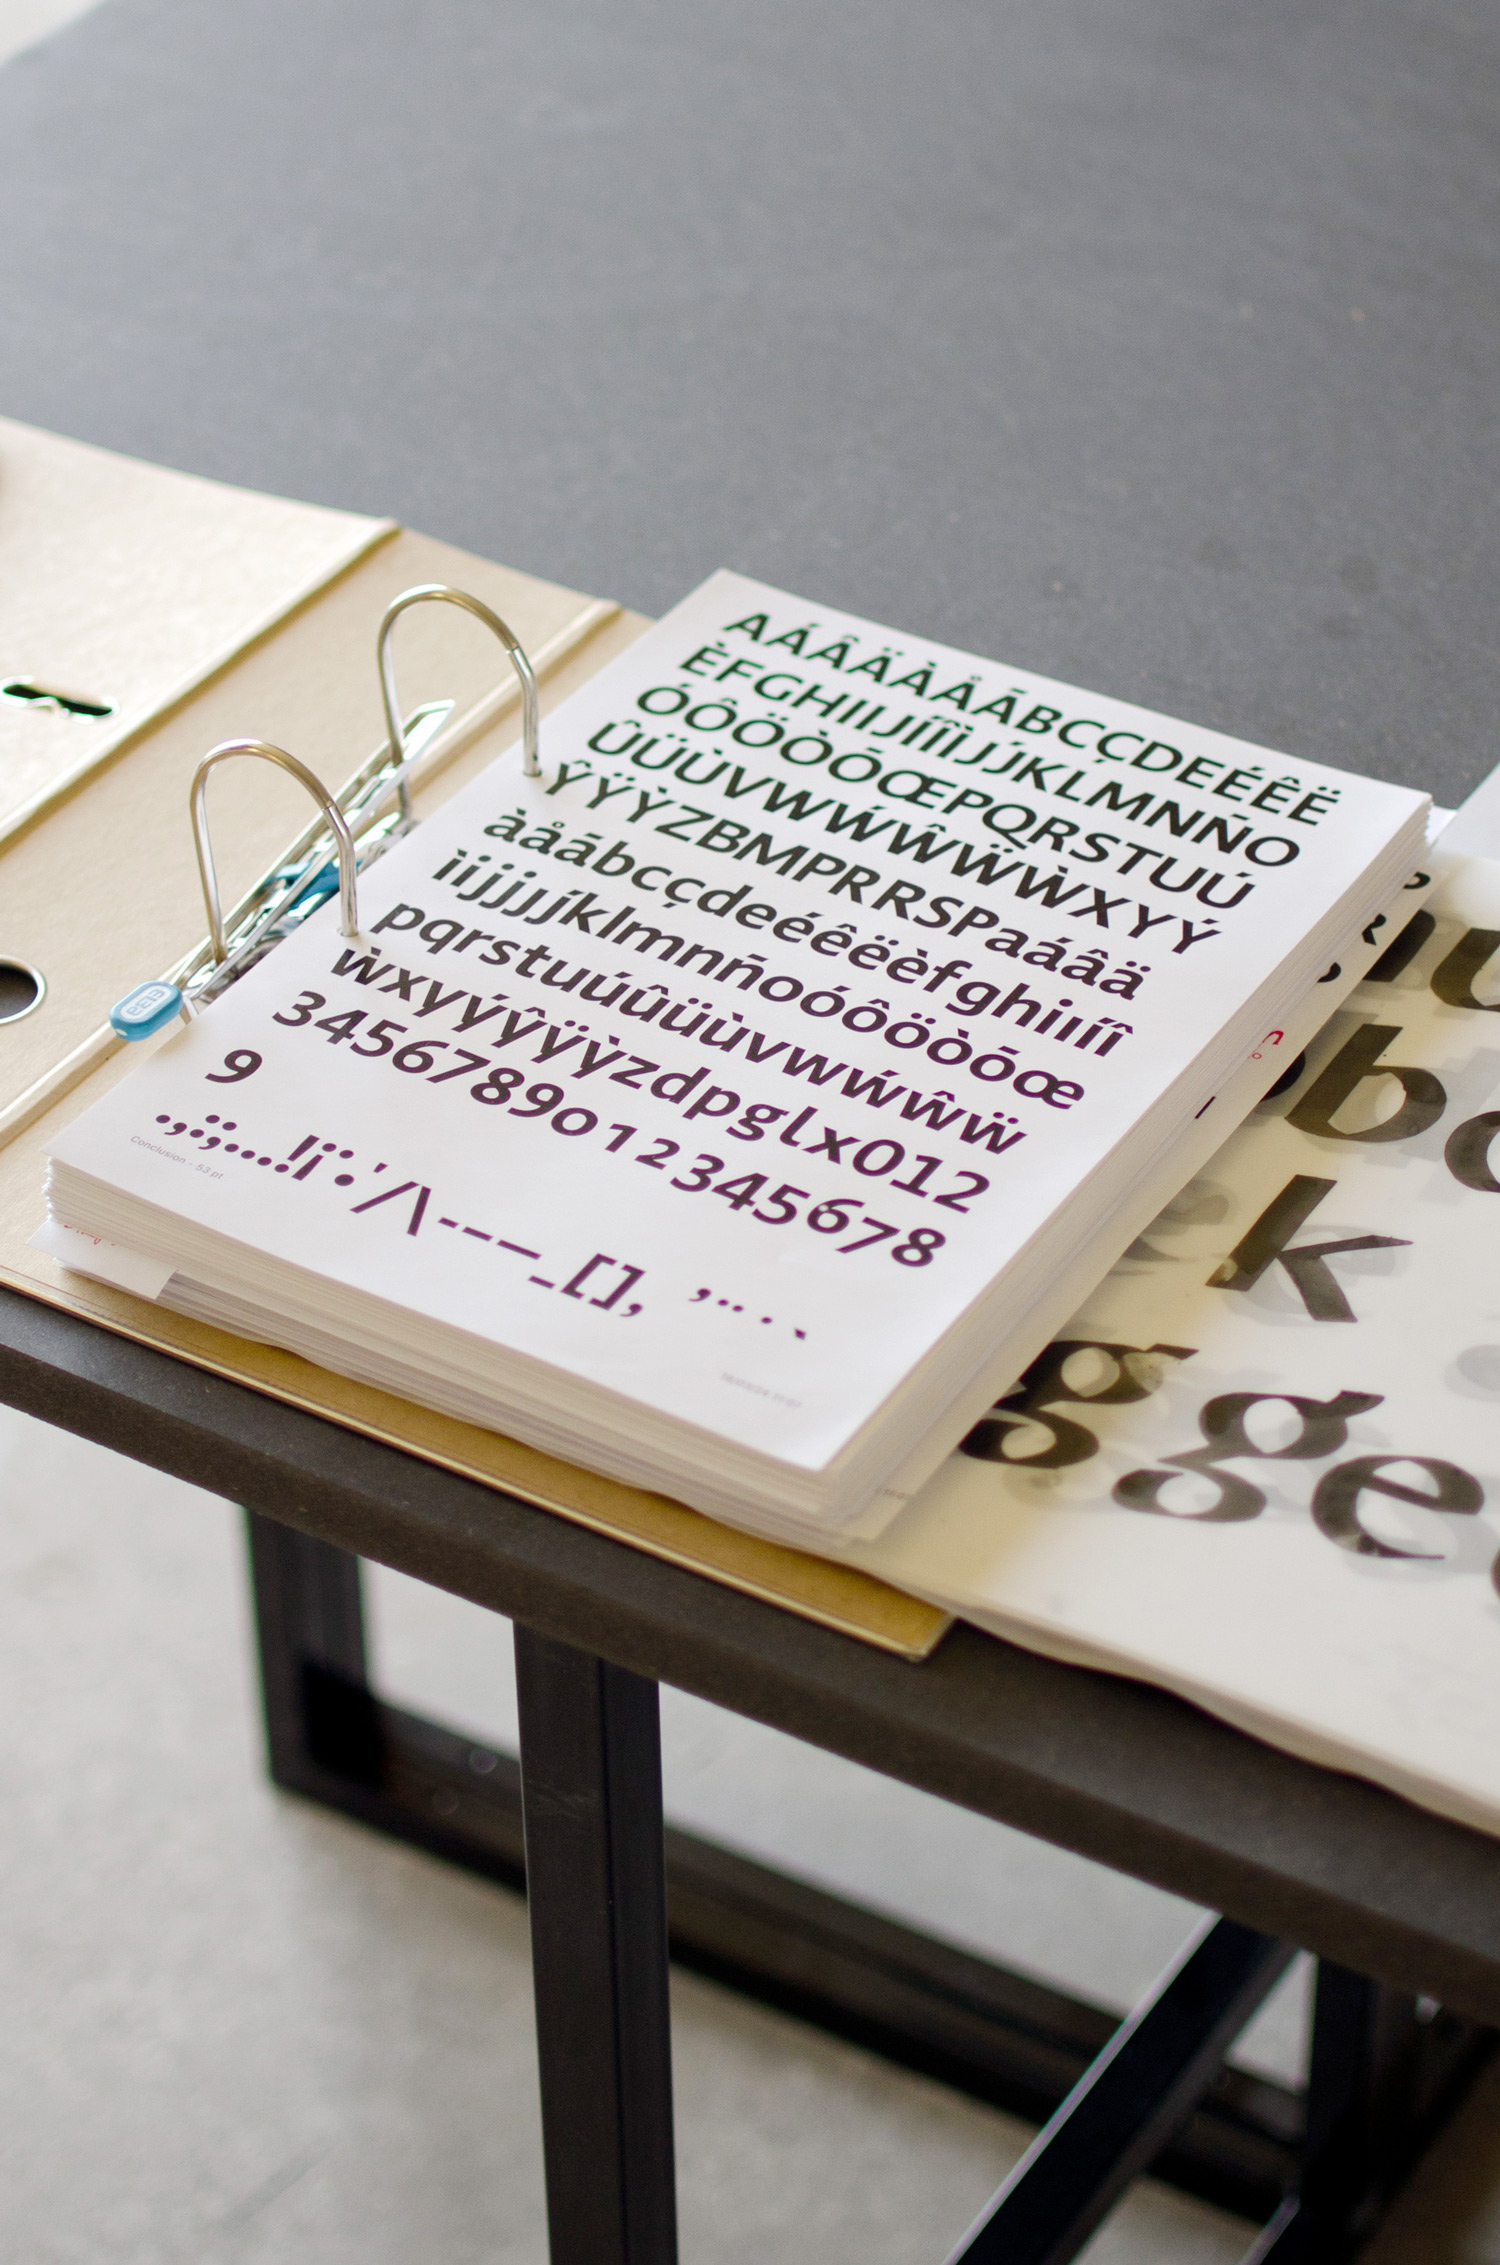 AÁÂÄÀÅÃBCÇDEÉÊË
ÈFGHIIJÍÎÌJJ́KLMNÑO
ÓÔÖÒÕŒPQRSTUÚ
ÛÜÙVWẂŴẄẀXYÝ
ŶŸỲZBMPRRSPaáâä
àåãbcçdeéêëèfghiıíî
ìijjjj́klmnñoóôöòõœ
pqrstuúûüùvwẃŵẅ
ẁxyýŷÿỳzdpglx012
34567890 12345678
9
.,:;...!¡·•'/\-–—_[],
Conclusion - 53 pt
bo
k
g ge